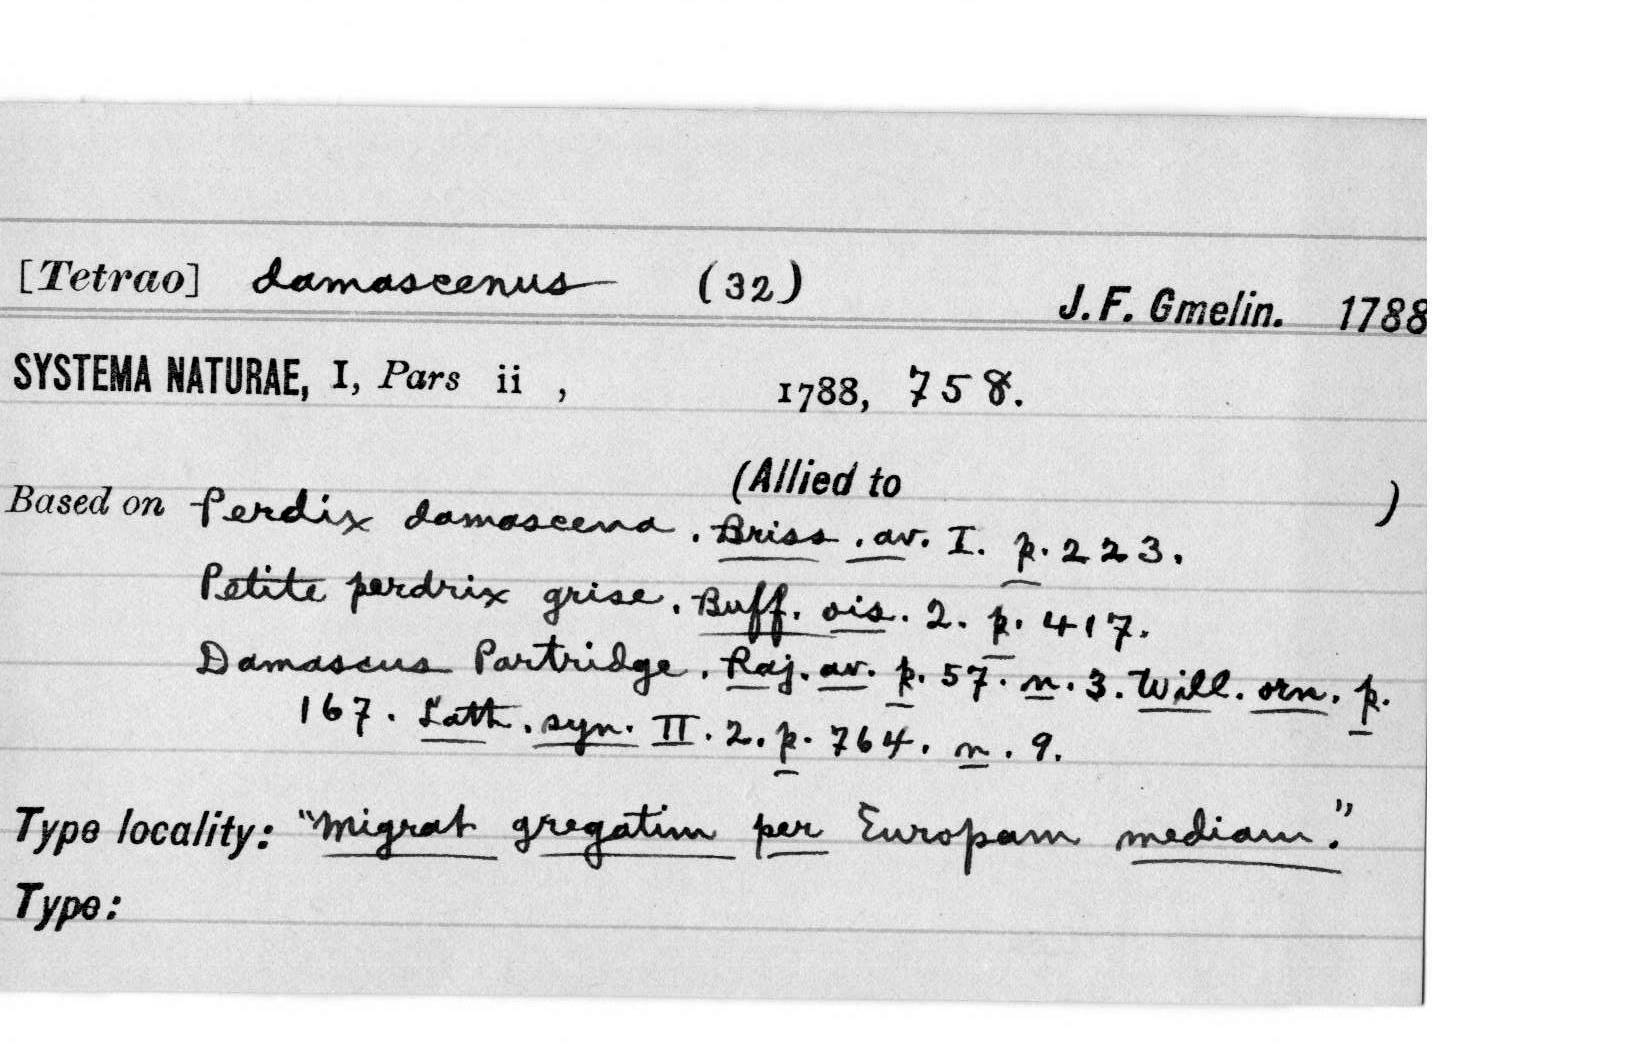 [Tetrao] damascenus (32) J. F. Gmelin. 1788
SYSTEMA NATURAE, I, Pars ii , 1788, 758.
(Allied to )
Based on Perdix damascena. Briss. av. I. p. 223.
Petite perdrix grise. Buff. ois. 2. p. 417.
Damascus Partridge. Raj. av. p. 57. n. 3. Will. orn. p.
167. Lath. syn. II. 2. p. 764. n. 9.
Type locality: "Migrat gregatim per Europam mediam."
Type: